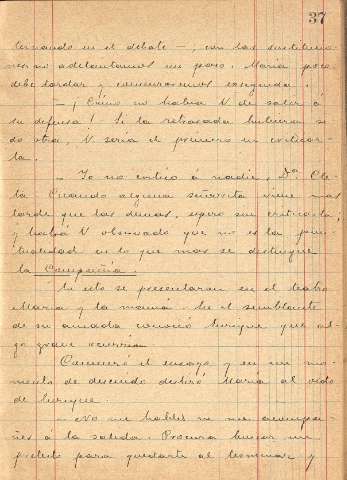 37
terciando en el debate —, con las sustitucio-
nes no adelantamos un paso. María poco
debe tardar y comenzaremos enseguida.
— ¡Cómo no había V de salir á
su defensa! Si la retrasada hubiera si-
do otra, V. sería el primero en criticar-
la.
— Yo no critico á nadie, Dª. Cle-
ta. Cuando alguna señorita viene mas
tarde que las demas, espero sin criticarla;
y habrá V observado que no es la pun-
tualidad en lo que mas se distingue
la Compañía.
En esto se presentaron en el teatro
María y la mamá. En el semblante
de su amada conoció Enrique que al-
go grave ocurría.
Comenzó el ensayo y en un mo-
mento de descuido deslizó María al oido
de Enrique.
— No me hables ni me acompa-
ñes á la salida. Procura buscar un
pretexto para quedarte al terminar y